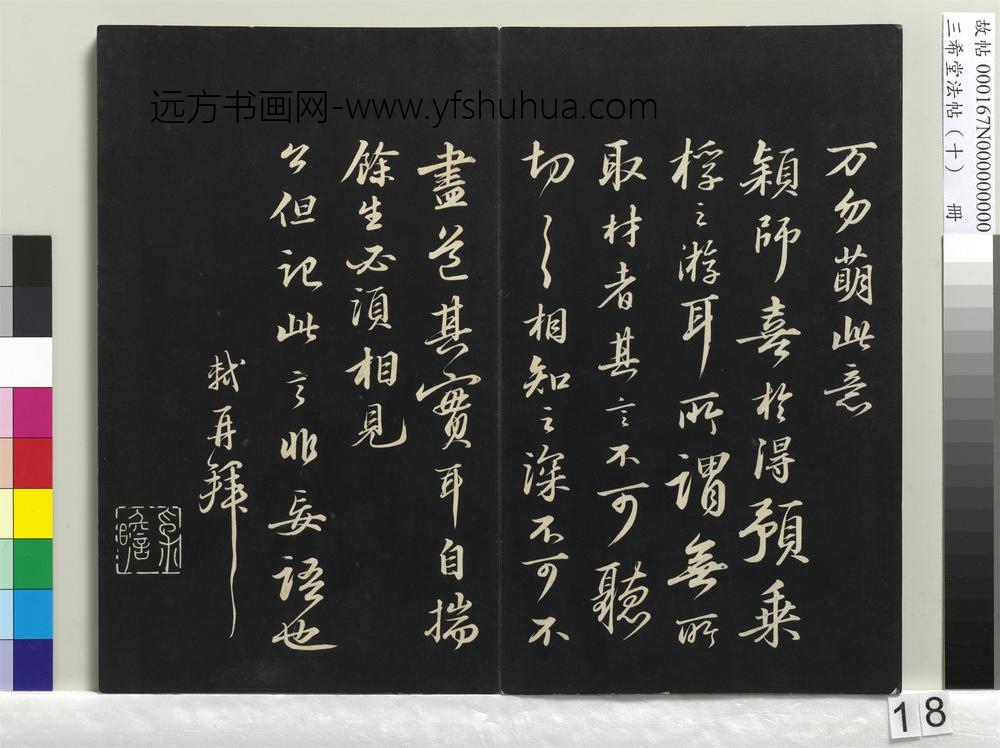 万勿萌此意
颖師喜於得預乗
桴之游耳所謂無所
取材者其言不可聽
切〻相知之深不可不
盡道其實耳自揣
餘生必須相見
公但記此言非妄語也
軾再拜
远方书画网-www.yfshuhua.com
故帖 000167N000000000
三希堂法帖（十） 冊
18